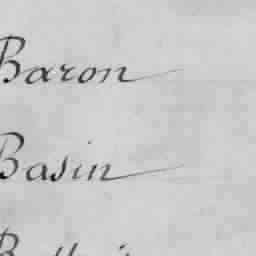 Baron
Basin